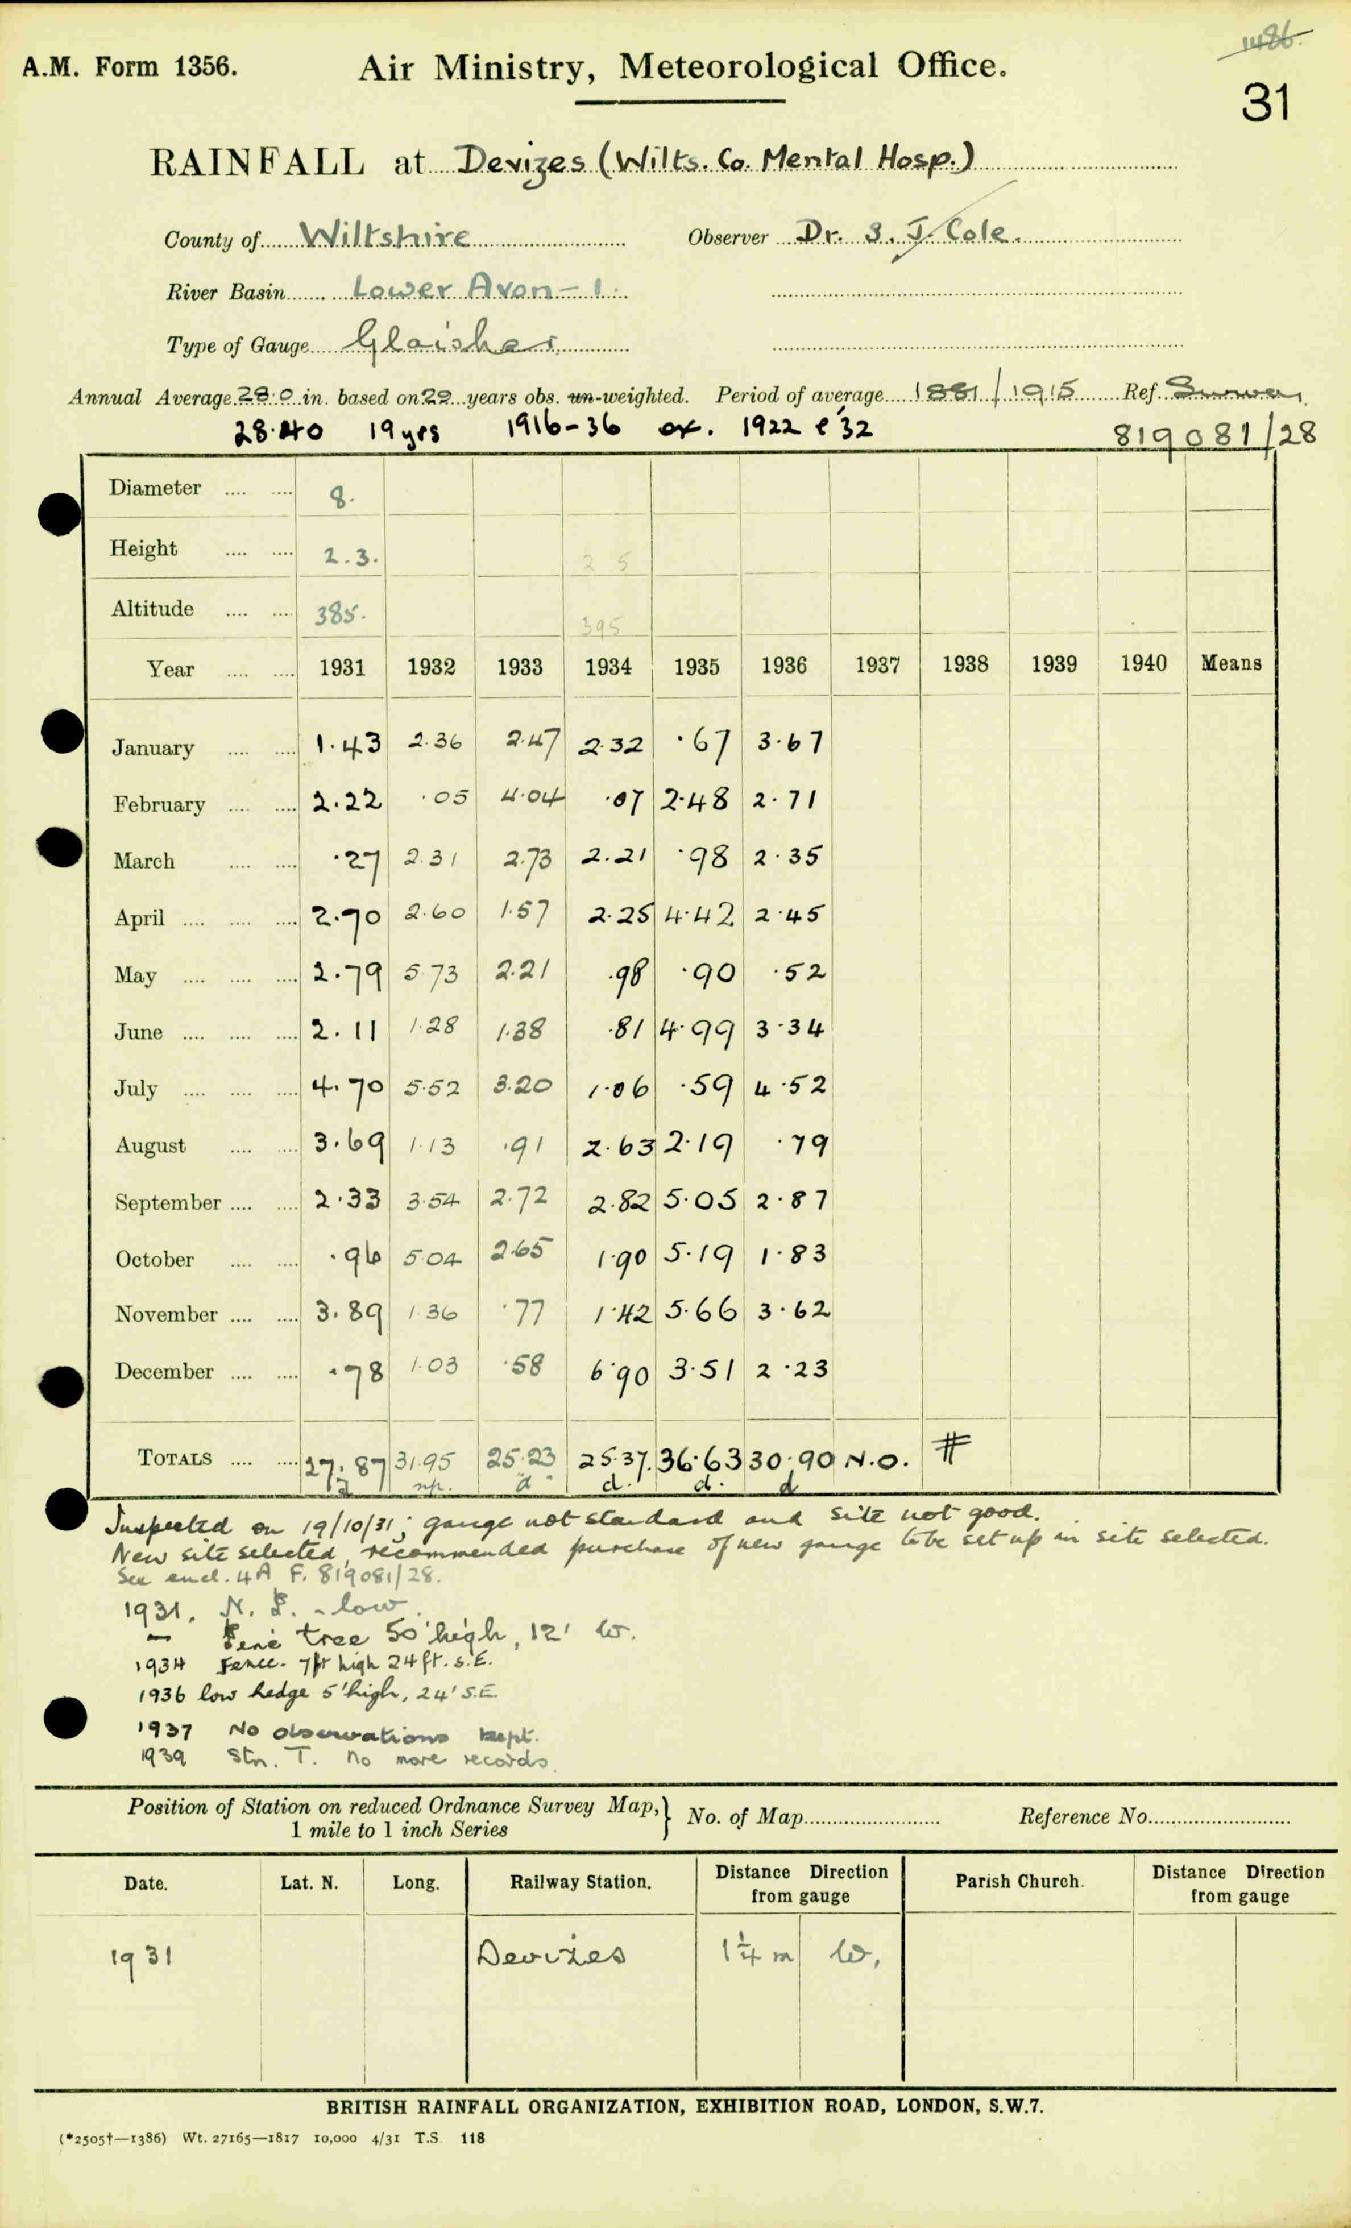 1486.
A.M. Form 1356. Air Ministry, Meteorological Office.
31
RAINFALL at Devizes (Wilts. Co. Mental Hosp.)
County of Wiltshire Observer Dr. S. J. Cole.
River Basin Lower Avon - 1.
Type of Gauge Glaisher
Annual Average 28.0 in. based on 29 years obs. un-weighted. Period of average 1881/1915 Ref. Survey
28.40 19 yrs 1916-36 ex. 1922 & '32 819081/28
Diameter .... .... 8.
Height .... .... 2.3. 2 5
Altitude .... .... 385. 395
Year .... .... 1931 1932 1933 1934 1935 1936 1937 1938 1939 1940 Means
January .... .... 1.43 2.36 2.47 2.32 .67 3.67
February .... .... 2.22 .05 4.04 .07 2.48 2.71
March .... .... .27 2.31 2.73 2.21 .98 2.35
April .... .... .... 2.70 2.60 1.57 2.25 4.42 2.45
May .... .... .... 2.79 5.73 2.21 .98 .90 .52
June .... .... .... 2.11 1.28 1.38 .81 4.99 3.34
July .... .... .... 4.70 5.52 3.20 1.06 .59 4.52
August .... .... 3.69 1.13 .91 2.63 2.19 .79
September .... .... 2.33 3.54 2.72 2.82 5.05 2.87
October .... .... .96 5.04 2.65 1.90 5.19 1.83
November .... .... 3.89 1.36 .77 1.42 5.66 3.62
December .... .... .78 1.03 .58 6.90 3.51 2.23
TOTALS .... .... 27.87 31.95 25.23 25.37. 36.63 30.90 N.O. #
np. d. d. d. d
Inspected on 19/10/31; gauge not standard and site not good.
New site selected, recommended purchase of new gauge to be set up in site selected.
See encl. 4A F. 819081/28.
1931. N. E. - low.
- tree 50' high, 12' W.
1934 Fence. 7ft high 24 ft. S.E.
1936 low hedge 5' high, 24' S.E.
1937 No observations kept.
1939 Stn. T. no more records.
Position of Station on reduced Ordnance Survey Map, } No. of Map Reference No.
1 mile to 1 inch Series
Date. Lat. N. Long. Railway Station. Distance Direction from gauge Parish Church. Distance Direction from gauge
1931 Devizes 1¼ m W.
BRITISH RAINFALL ORGANIZATION, EXHIBITION ROAD, LONDON, S.W.7.
(*2505†—1386) Wt. 27165—1817 10,000 4/31 T.S. 118